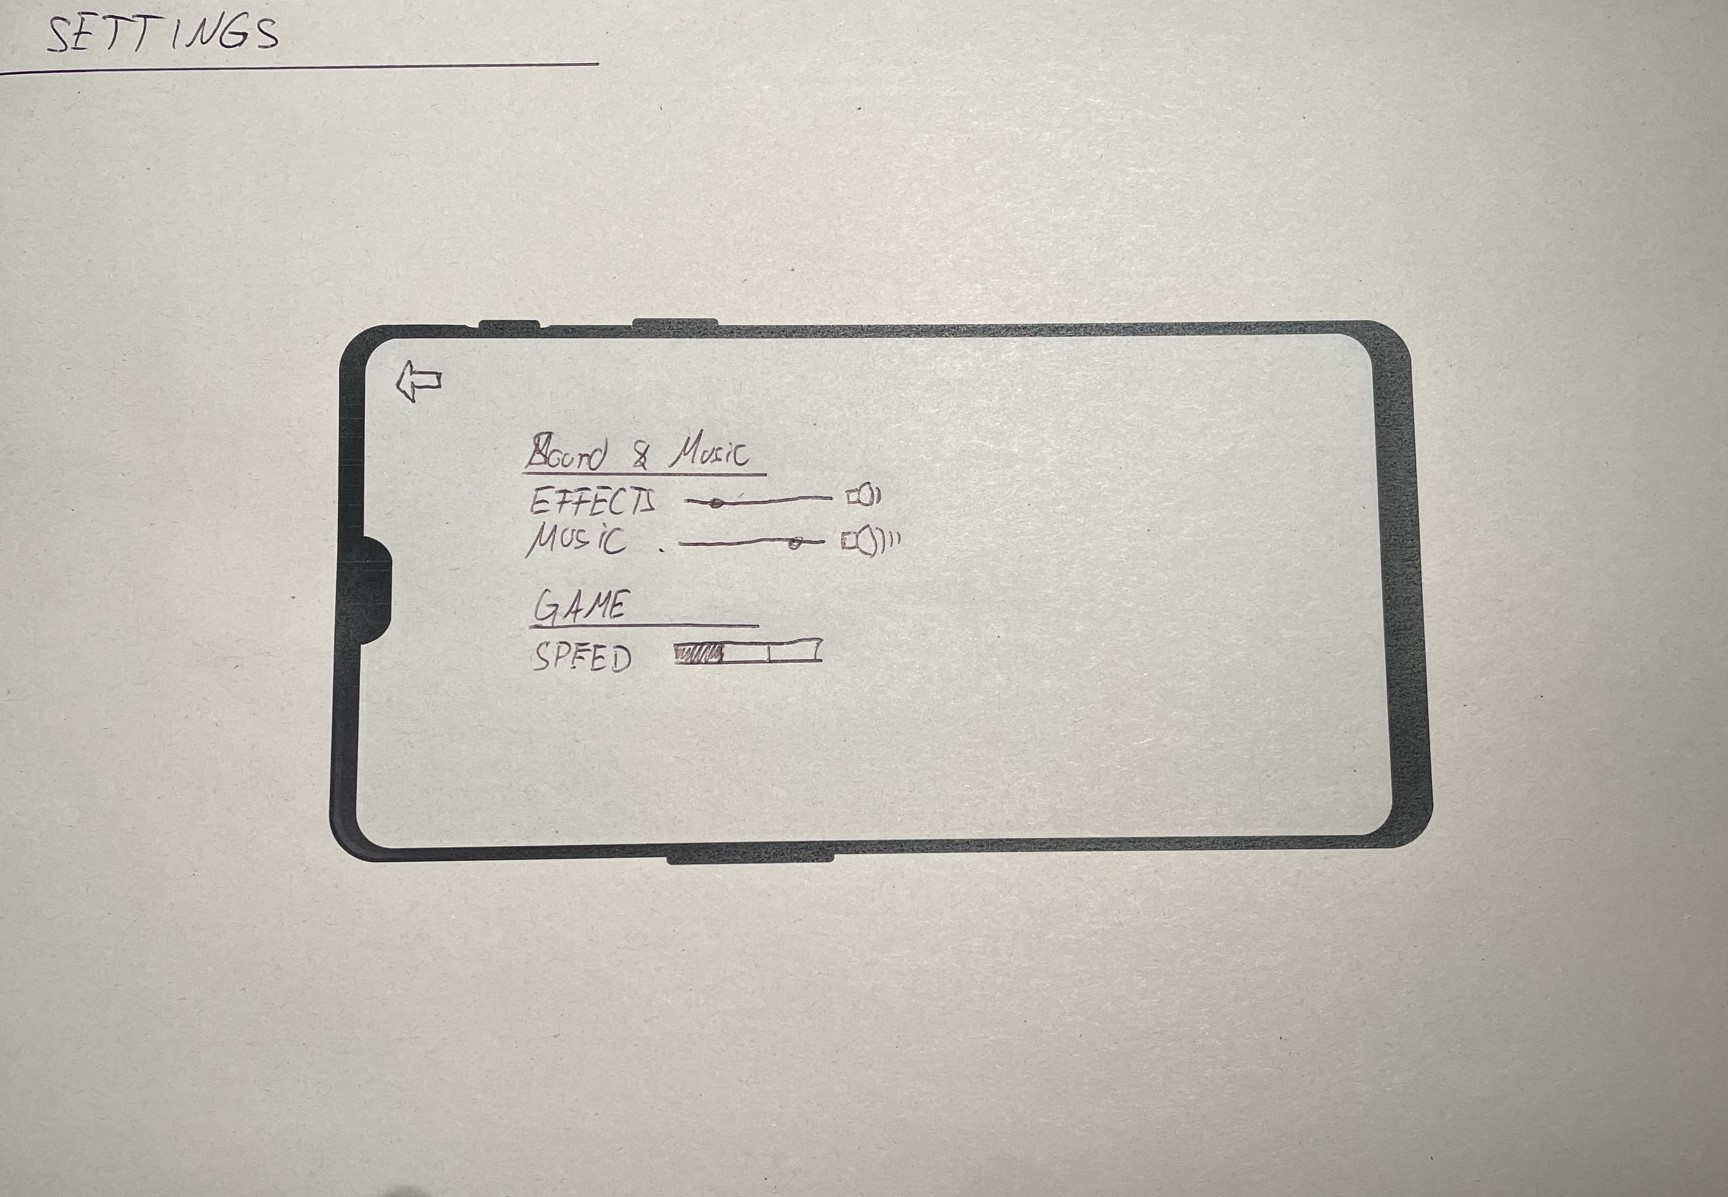 SETTINGS
Sound & Music
EFFECTS
MUSIC
GAME
SPEED